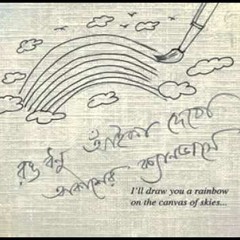 রঙধনু আঁইকা দেবো
আকাশের ক্যানভাসে
I'll draw you a rainbow
on the canvas of skies...